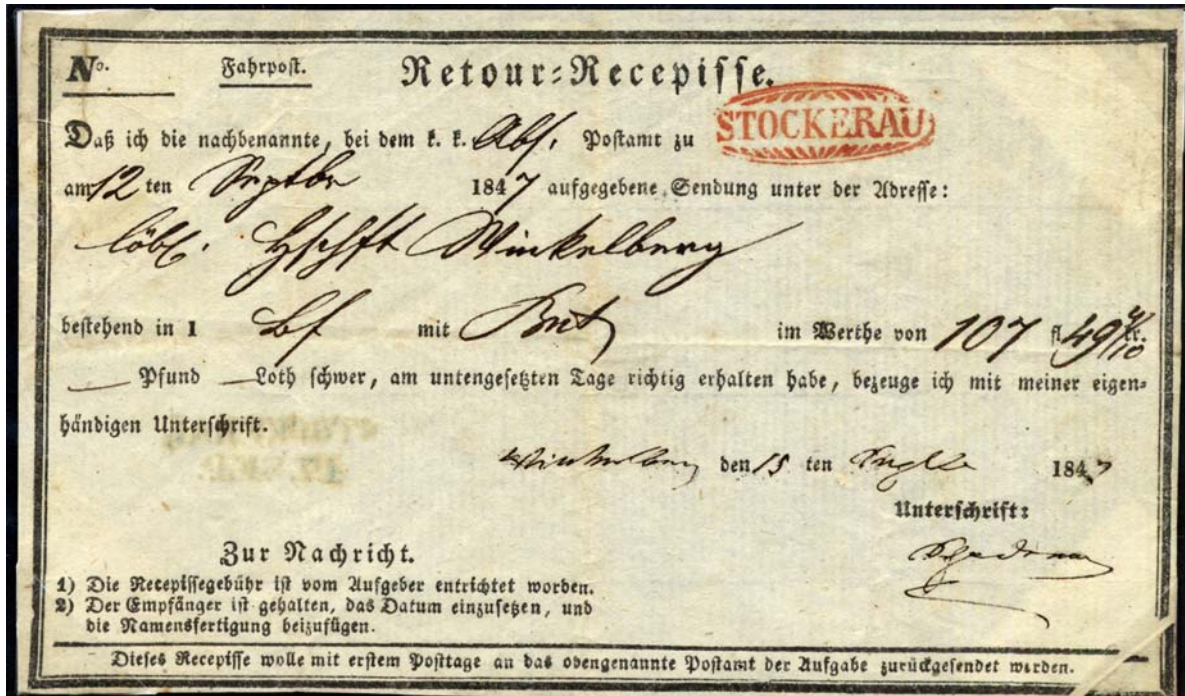 No. Fahrpost. Retour-Recepisse.
STOCKERAU
Daß ich die nachbenannte, bei dem k. k. Abs. Postamt zu
am 12 ten Septbr 1847 aufgegebene Sendung unter der Adresse:
löbl. Hschft Winkelberg
bestehend in 1 Bf mit im Werthe von 107 fl. 49 kr.
Pfund Loth schwer, am untengesetzten Tage richtig erhalten habe, bezeuge ich mit meiner eigen-
händigen Unterschrift.
Winkelberg den 15 ten 1847
Unterschrift:
Zur Nachricht.
1) Die Recepissegebühr ist vom Aufgeber entrichtet worden.
2) Der Empfänger ist gehalten, das Datum einzusetzen, und
die Namensfertigung beizufügen.
Dieses Recepisse wolle mit erstem Posttage an das obengenannte Postamt der Aufgabe zurückgesendet werden.